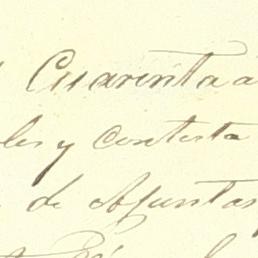 Cuarenta a
les y contesta
de Apuntas